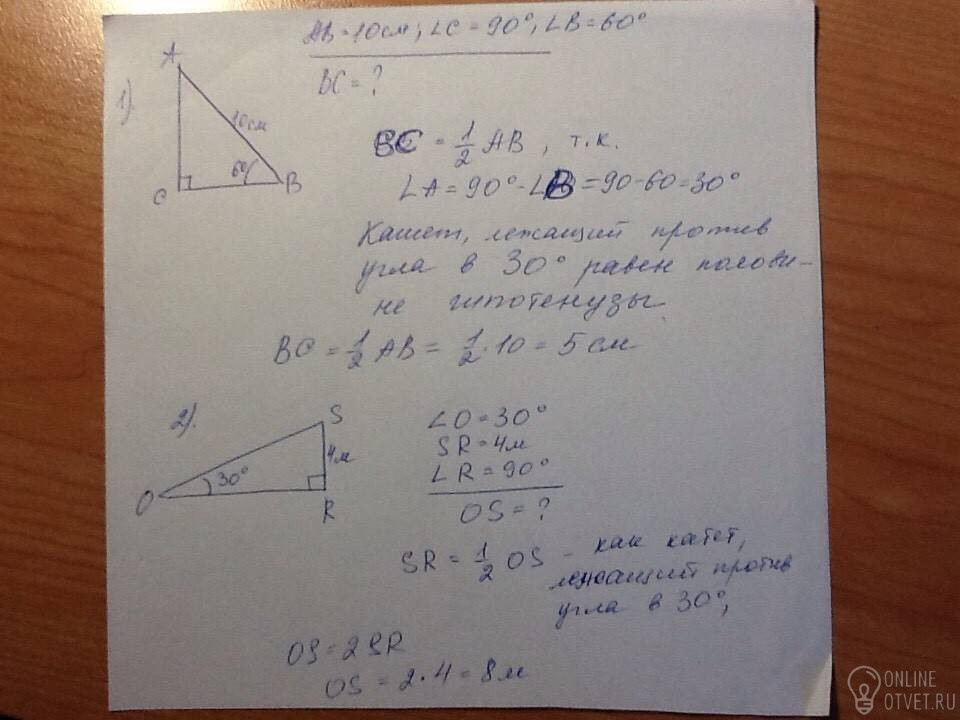 AB=10см; ∠C=90°, ∠B=60°
BC=?
1).
A
10см
60
C
B
BC = 1/2 AB, т.к.
∠A=90°-∠B=90-60=30°
Катет, лежащий против
угла в 30° равен полови-
не гипотенузы.
BC = 1/2 AB = 1/2 · 10 = 5 см
2).
S
4м
30°
O
R
∠O=30°
SR=4м
∠R=90°
OS=?
SR = 1/2 OS - как катет,
лежащий против
угла в 30°,
OS=2SR
OS = 2·4=8м
ONLINE
OTVET.RU